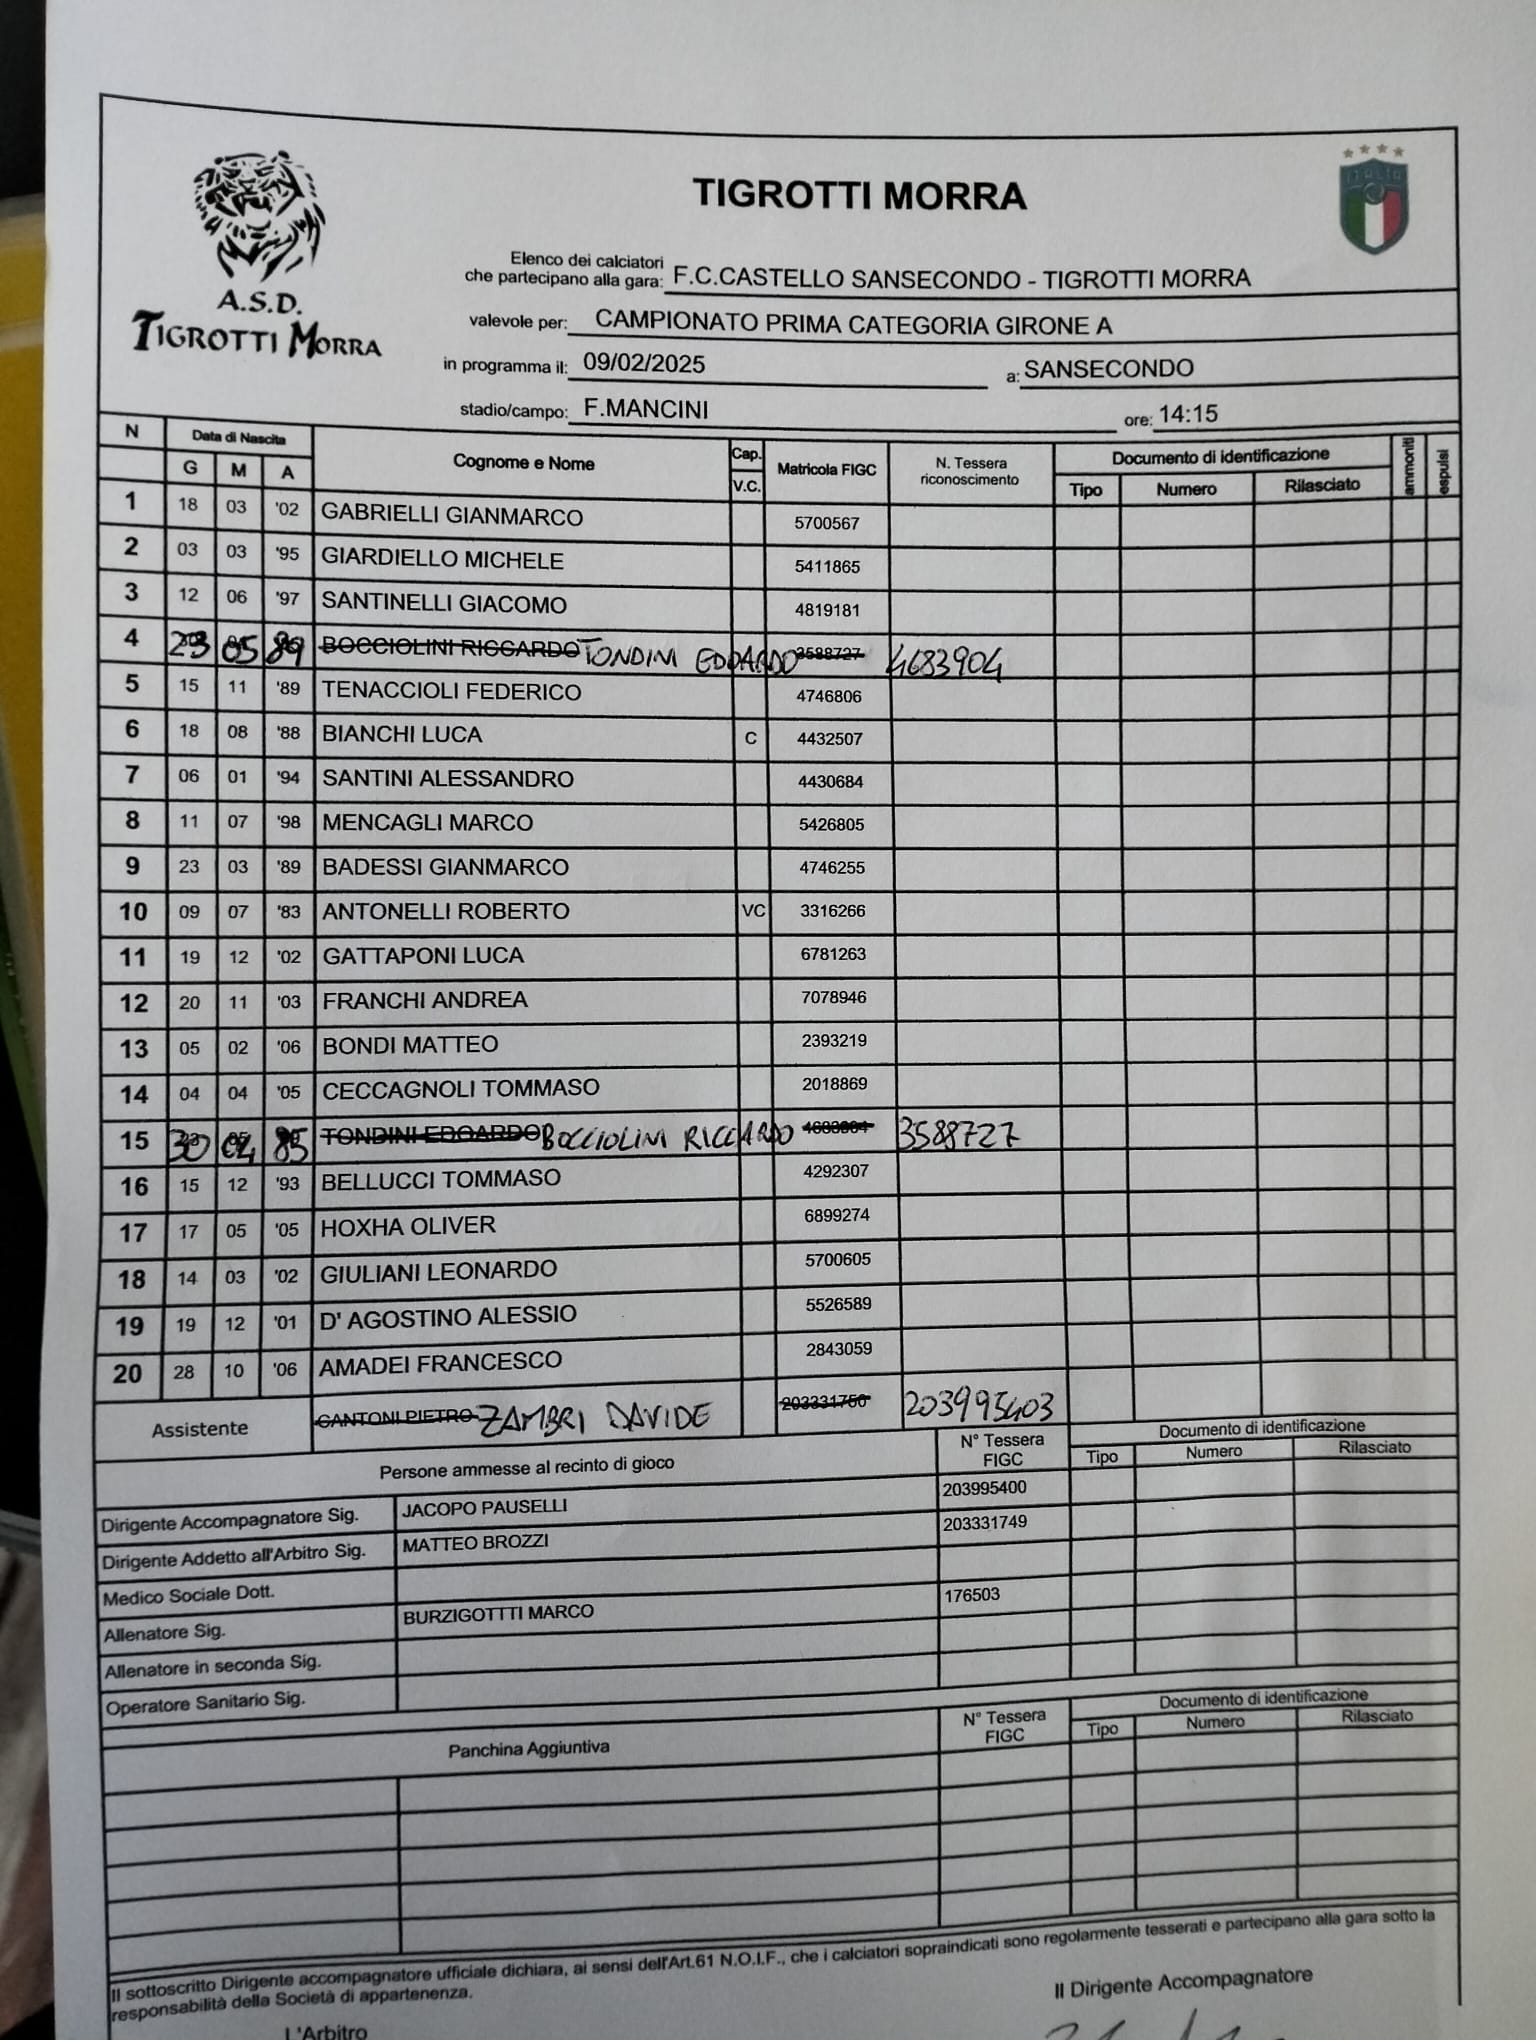 ITALIA
TIGROTTI MORRA
A.S.D.
TIGROTTI MORRA
Elenco dei calciatori
che partecipano alla gara: F.C.CASTELLO SANSECONDO - TIGROTTI MORRA
valevole per: CAMPIONATO PRIMA CATEGORIA GIRONE A
in programma il: 09/02/2025 a: SANSECONDO
stadio/campo: F.MANCINI ore: 14:15
N Data di Nascita Cognome e Nome Cap. Matricola FIGC N. Tessera riconoscimento Documento di identificazione ammoniti espulsi
G M A V.C. Tipo Numero Rilasciato
1 18 03 '02 GABRIELLI GIANMARCO 5700567
2 03 03 '95 GIARDIELLO MICHELE 5411865
3 12 06 '97 SANTINELLI GIACOMO 4819181
4 23 05 89 BOCCIOLINI RICCARDO TONDINI EDOARDO 3588727 4683904
5 15 11 '89 TENACCIOLI FEDERICO 4746806
6 18 08 '88 BIANCHI LUCA C 4432507
7 06 01 '94 SANTINI ALESSANDRO 4430684
8 11 07 '98 MENCAGLI MARCO 5426805
9 23 03 '89 BADESSI GIANMARCO 4746255
10 09 07 '83 ANTONELLI ROBERTO VC 3316266
11 19 12 '02 GATTAPONI LUCA 6781263
12 20 11 '03 FRANCHI ANDREA 7078946
13 05 02 '06 BONDI MATTEO 2393219
14 04 04 '05 CECCAGNOLI TOMMASO 2018869
15 30 04 85 TONDINI EDOARDO BOCCIOLINI RICCARDO 3588727
16 15 12 '93 BELLUCCI TOMMASO 4292307
17 17 05 '05 HOXHA OLIVER 6899274
18 14 03 '02 GIULIANI LEONARDO 5700605
19 19 12 '01 D' AGOSTINO ALESSIO 5526589
20 28 10 '06 AMADEI FRANCESCO 2843059
Assistente CANTONI PIETRO ZAMBRI DAVIDE 203331750 203995403
Persone ammesse al recinto di gioco N° Tessera FIGC Documento di identificazione
Tipo Numero Rilasciato
Dirigente Accompagnatore Sig. JACOPO PAUSELLI 203995400
Dirigente Addetto all'Arbitro Sig. MATTEO BROZZI 203331749
Medico Sociale Dott.
Allenatore Sig. BURZIGOTTTI MARCO 176503
Allenatore in seconda Sig.
Operatore Sanitario Sig.
Panchina Aggiuntiva N° Tessera FIGC Documento di identificazione
Tipo Numero Rilasciato
Il sottoscritto Dirigente accompagnatore ufficiale dichiara, ai sensi dell'Art.61 N.O.I.F., che i calciatori sopraindicati sono regolarmente tesserati e partecipano alla gara sotto la
responsabilità della Società di appartenenza.
Il Dirigente Accompagnatore
L'Arbitro